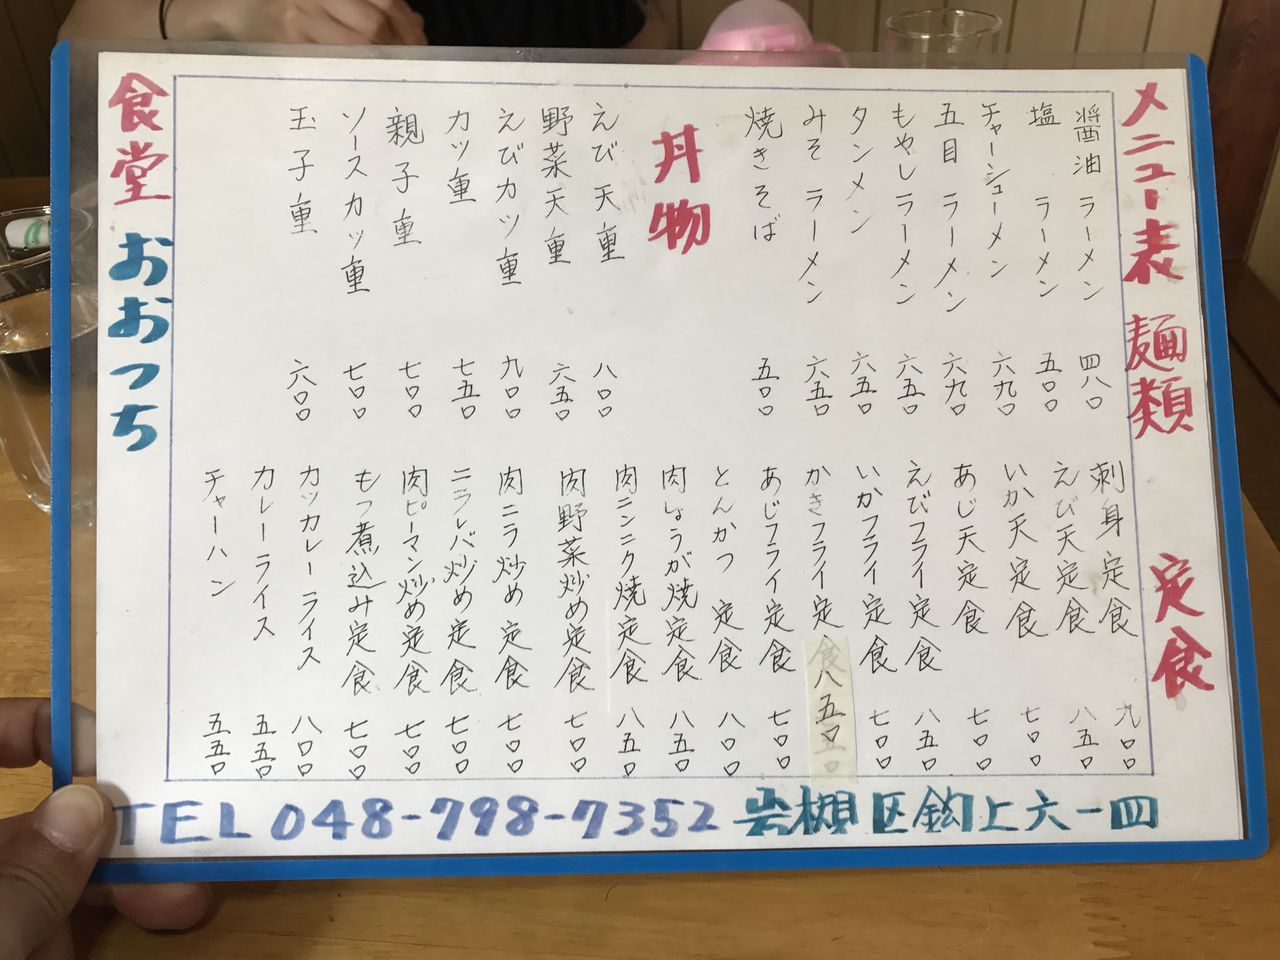 メニュー表 麺類 定食
醤油ラーメン 四八〇
塩ラーメン 五〇〇
チャーシューメン 六九〇
五目ラーメン 六九〇
もやしラーメン 六五〇
タンメン 六五〇
みそラーメン 六五〇
焼きそば 五〇〇
丼物
えび天重 八〇〇
野菜天重 六五〇
えびカツ重 九〇〇
カツ重 七五〇
親子重 七〇〇
ソースカツ重 七〇〇
玉子重 六〇〇
刺身定食 九〇〇
えび天定食 八五〇
いか天定食 七〇〇
あじ天定食 七〇〇
えびフライ定食 八五〇
いかフライ定食 七〇〇
かきフライ定食 八五〇
あじフライ定食 七〇〇
とんかつ定食 八〇〇
肉しょうが焼定食 八五〇
肉ニンニク焼定食 八五〇
肉野菜炒め定食 七〇〇
肉ニラ炒め定食 七〇〇
ニラレバ炒め定食 七〇〇
肉ピーマン炒め定食 七〇〇
もつ煮込み定食 七〇〇
カツカレーライス 八〇〇
カレーライス 五五〇
チャーハン 五五〇
食堂 おおつち
TEL 048-798-7352 岩槻区鈎上六一四